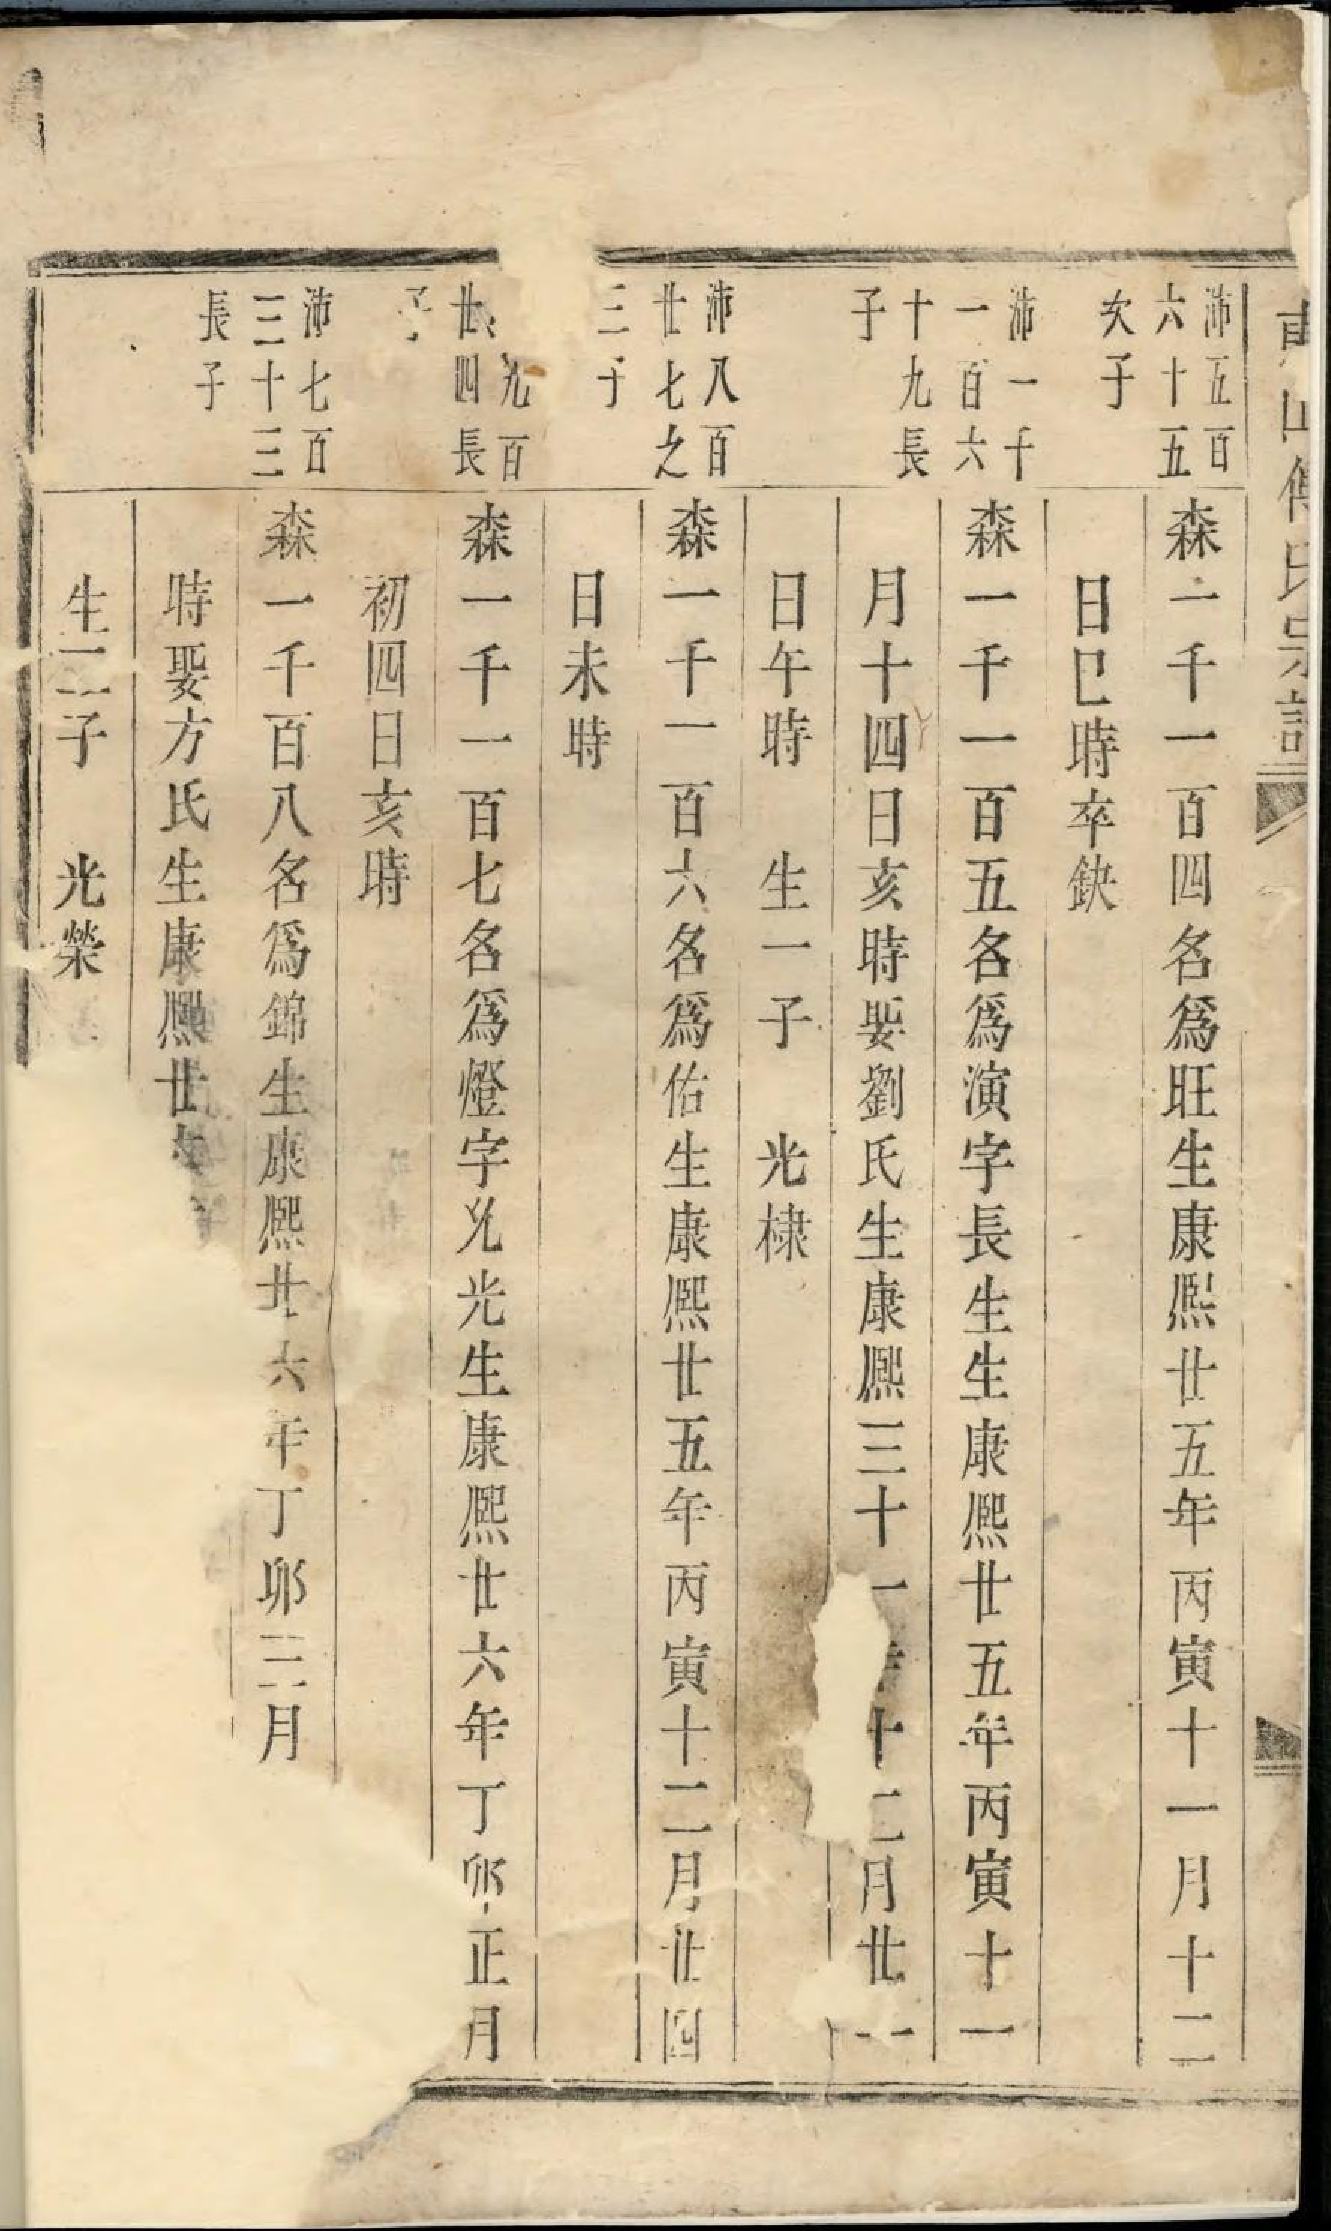 山傅氏宗譜
沛五百
六十五
次子
森一千一百四名爲旺生康熙廿五年丙寅十一月十二
日巳時卒缺
沛一千
一百六
十九長
子
森一千一百五名爲演字長生生康熙廿五年丙寅十一
月十四日亥時娶劉氏生康熙三十一十二月廿一
日午時 生一子 光棣
沛八百
廿七之
三子
森一千一百六名爲佑生康熙廿五年丙寅十二月廿四
日未時
九百
廿四長
子
森一千一百七名爲燈字兆光生康熙廿六年丁卯正月
初四日亥時
沛七百
三十三
長子
森一千百八名爲錦生康熙廿六年丁卯三月
時娶方氏生康熙廿
生二子 光榮